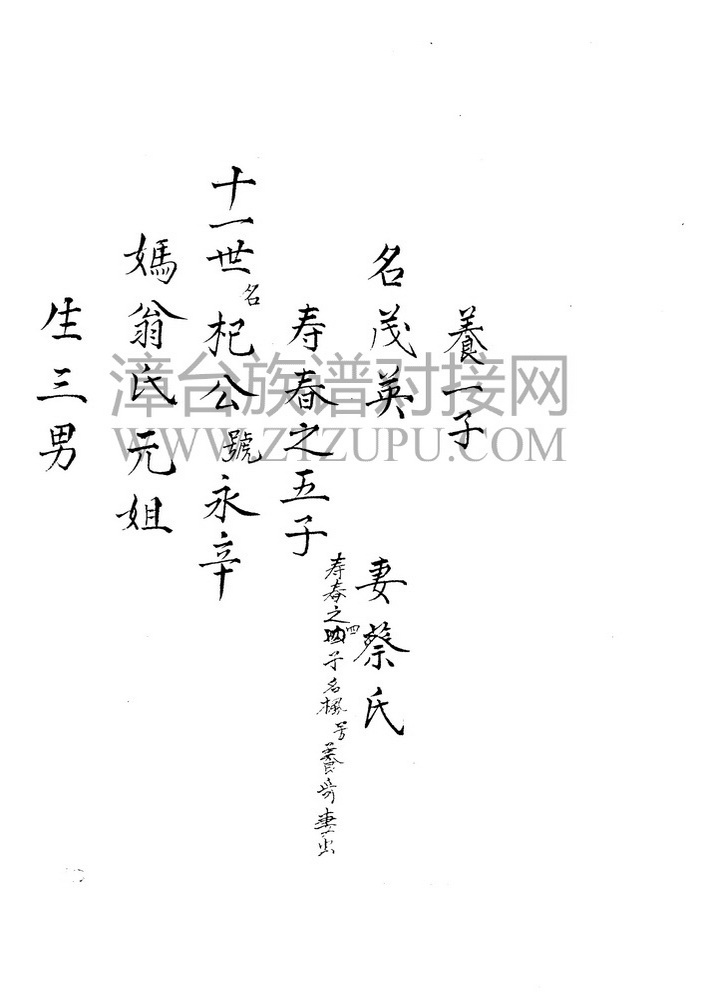 養一子
名茂英 妻蔡氏
寿春之五子
寿春之四子名楓号養奇妻
十一世名杞公號永辛
媽翁氏元姐
生三男
漳台族谱对接网
WWW.ZTZUPU.COM